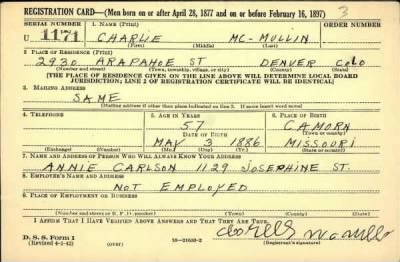 REGISTRATION CARD—(Men born on or after April 28, 1877 and on or before February 16, 1897) 3
SERIAL NUMBER 1. NAME (Print) ORDER NUMBER
U 1171 CHARLIE MC-MULLIN
(First) (Middle) (Last)
2. PLACE OF RESIDENCE (Print)
2930 ARAPAHOE ST DENVER COLO
(Number and street) (Town, township, village, or city) (County) (State)
[THE PLACE OF RESIDENCE GIVEN ON THE LINE ABOVE WILL DETERMINE LOCAL BOARD
JURISDICTION; LINE 2 OF REGISTRATION CERTIFICATE WILL BE IDENTICAL]
3. MAILING ADDRESS
SAME
[Mailing address if other than place indicated on line 2. If same insert word same]
4. TELEPHONE 5. AGE IN YEARS 6. PLACE OF BIRTH
57 CAMORN
DATE OF BIRTH (Town or county)
MAY 3 1886 MISSOURI
(Exchange) (Number) (Mo.) (Day) (Yr.) (State or country)
7. NAME AND ADDRESS OF PERSON WHO WILL ALWAYS KNOW YOUR ADDRESS
ANNIE CARLSON 1129 JOSEPHINE ST.
8. EMPLOYER'S NAME AND ADDRESS
NOT EMPLOYED
9. PLACE OF EMPLOYMENT OR BUSINESS
(Number and street or R. F. D. number) (Town) (County) (State)
I AFFIRM THAT I HAVE VERIFIED ABOVE ANSWERS AND THAT THEY ARE TRUE.
D. S. S. Form 1
(Revised 4-1-42) (over) 16—21630-2 (Registrant's signature)